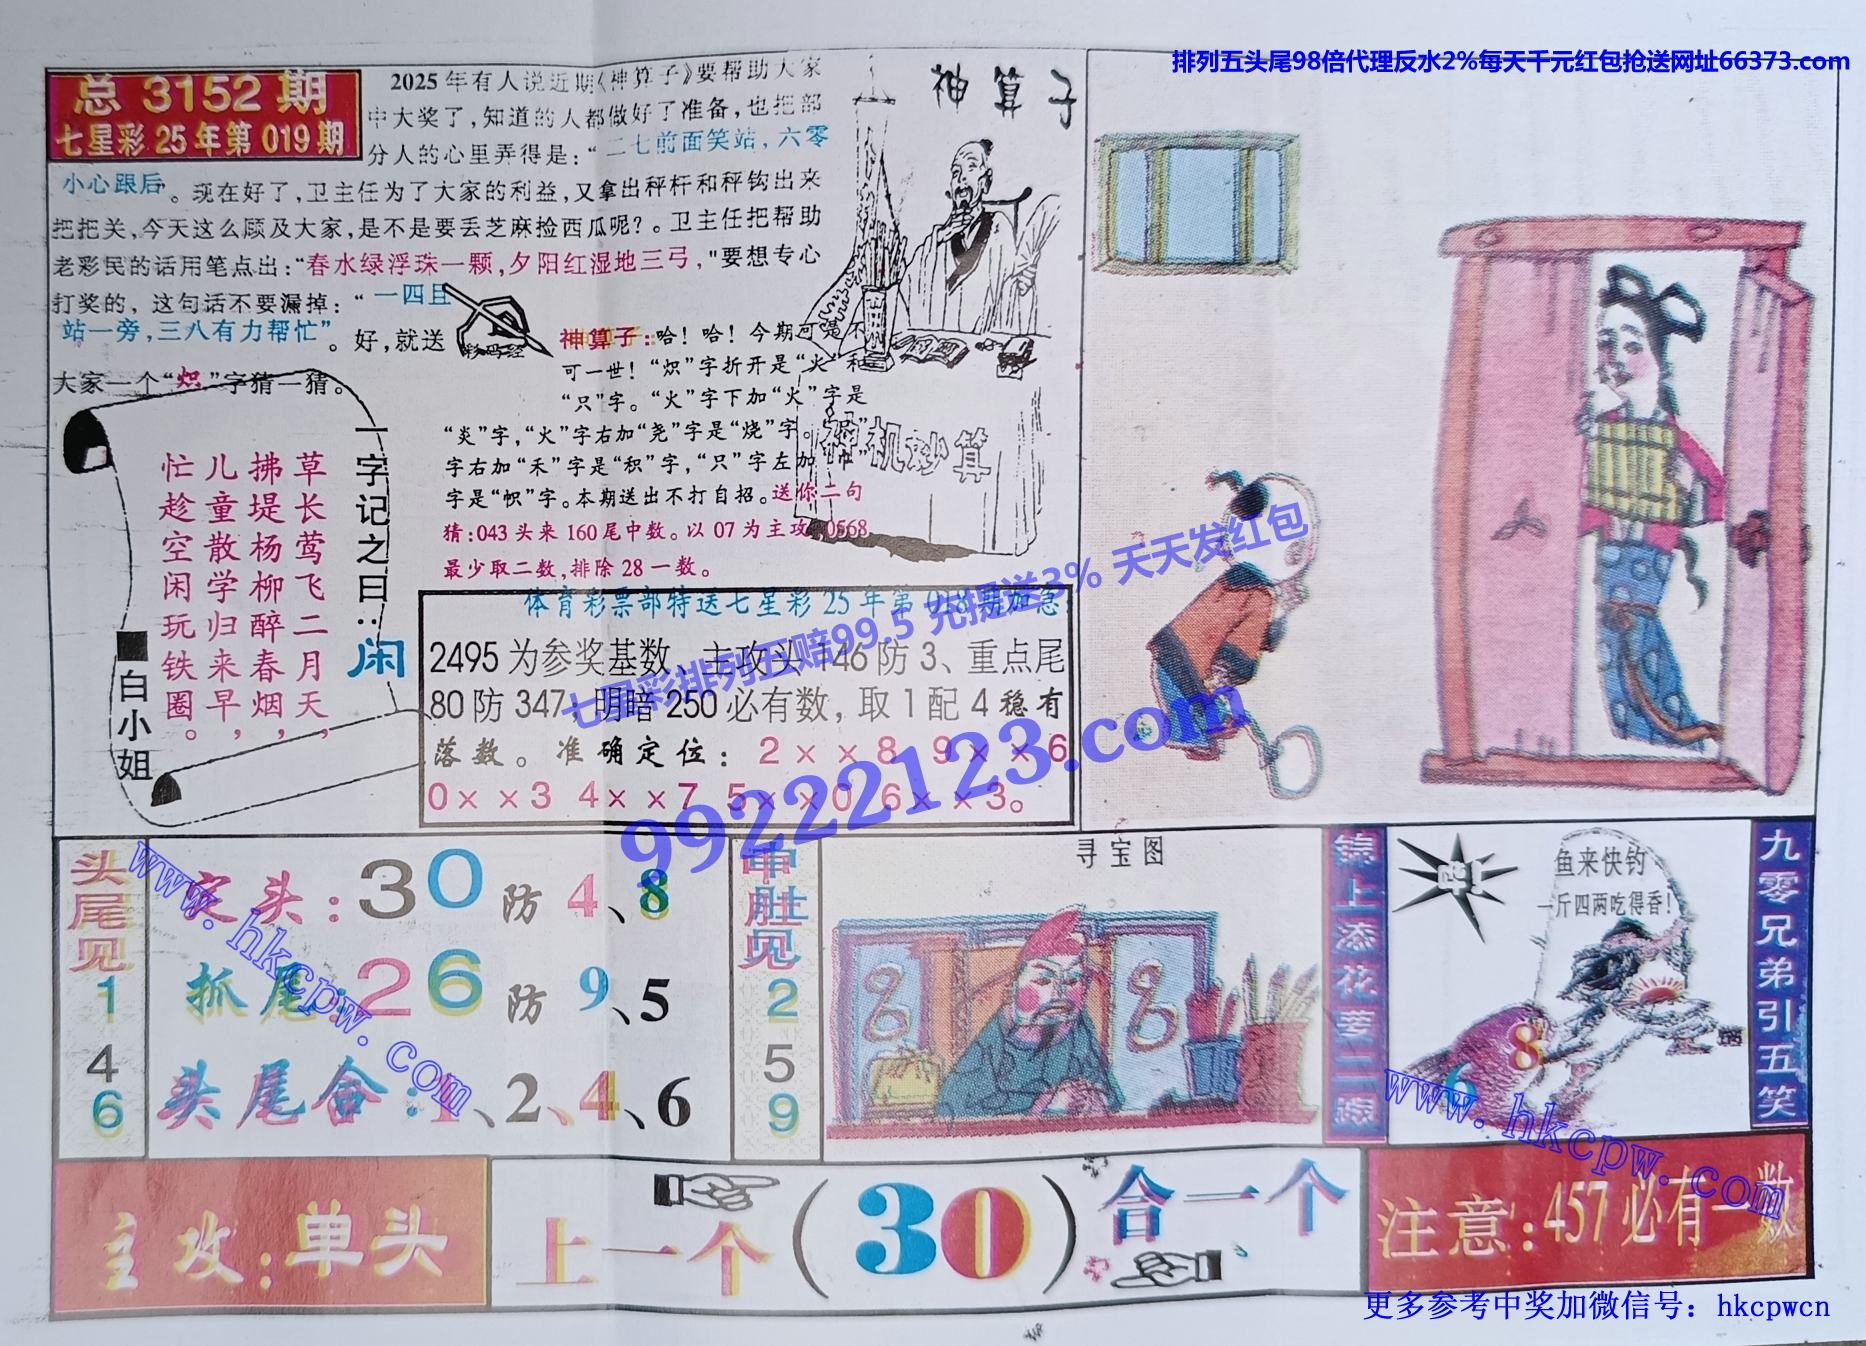 排列五头尾98倍代理反水2%每天千元红包抢送网址66373.com
总 3152 期
七星彩25年第019期
2025年有人说近期《神算子》要帮助大家
中大奖了，知道的人都做好了准备，也把部
分人的心里弄得是：“二七前面笑站，六零
小心跟后。现在好了，卫主任为了大家的利益，又拿出秤杆和秤钩出来
把把关，今天这么顾及大家，是不是要丢芝麻捡西瓜呢？。卫主任把帮助
老彩民的话用笔点出：“春水绿浮珠一颗，夕阳红湿地三弓，"要想专心
打奖的，这句话不要漏掉：“一四且
站一旁，三八有力帮忙”。好，就送
大家一个“炽”字猜一猜。
神算子
神算子：哈！哈！今期可是不
可一世！“炽”字折开是“火”和
“只”字。“火”字下加“火”字是
“炎”字，“火”字右加“尧”字是“烧”字。
字右加“禾”字是“积”字，“只”字左加“巾”
字是“帜”字。本期送出不打自招。送你二句
猜：043头来160尾中数。以07为主攻 0568
最少取二数，排除28一数。
神机妙算
一字记之曰：闲
草长莺飞二月天，
拂堤杨柳醉春烟，
儿童散学归来早，
忙趁空闲玩铁圈。
白小姐
体育彩票部特送七星彩25年第018期加急
2495为参奖基数、主攻头146防3、重点尾
80防347；明暗250必有数，取1配4稳有
落数。准确定位：2××8 9××6
0××3 4××7 5××0 6××3。
七星彩排列五赔99.5 充提送3% 天天发红包
99222123.com
头尾见146
定头：30防4、8
抓尾：26防9、5
头尾合：1、2、4、6
www.hkcpw.com
审胜见259
寻宝图
8 8
锦上添花要二跟
鱼来快钓
一斤四两吃得香！
6 8
九零兄弟引五笑
www.hkcpw.com
主攻：单头
上一个（30）合一个
注意：457必有一数
更多参考中奖加微信号：hkcpwcn